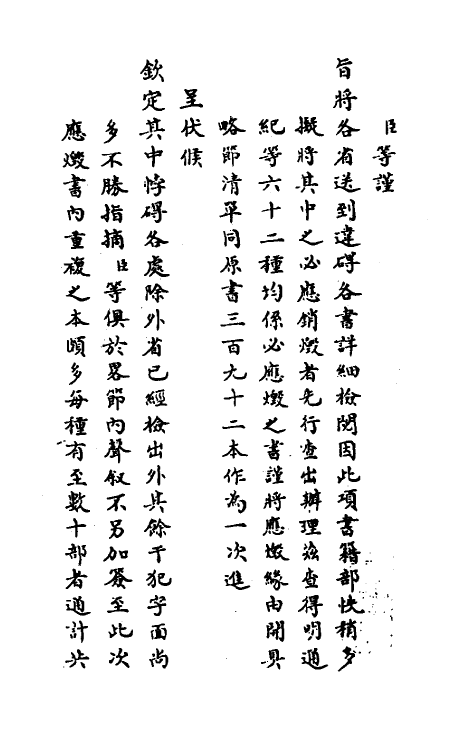 臣等謹
旨將各省送到違碍各書詳細檢閱因此項書籍部帙稍多
擬將其中之必應銷燬者先行查出辦理茲查得明通
紀等六十二種均係必應燬之書謹將應燬緣由開具
略節清單同原書三百九十二本作為一次進
呈伏候
欽定其中悖碍各處除外省已經檢出外其餘干犯字面尚
多不勝指摘臣等俱於畧節內聲叙不另加簽至此次
應燬書內重複之本頗多每種有至數十部者通計共